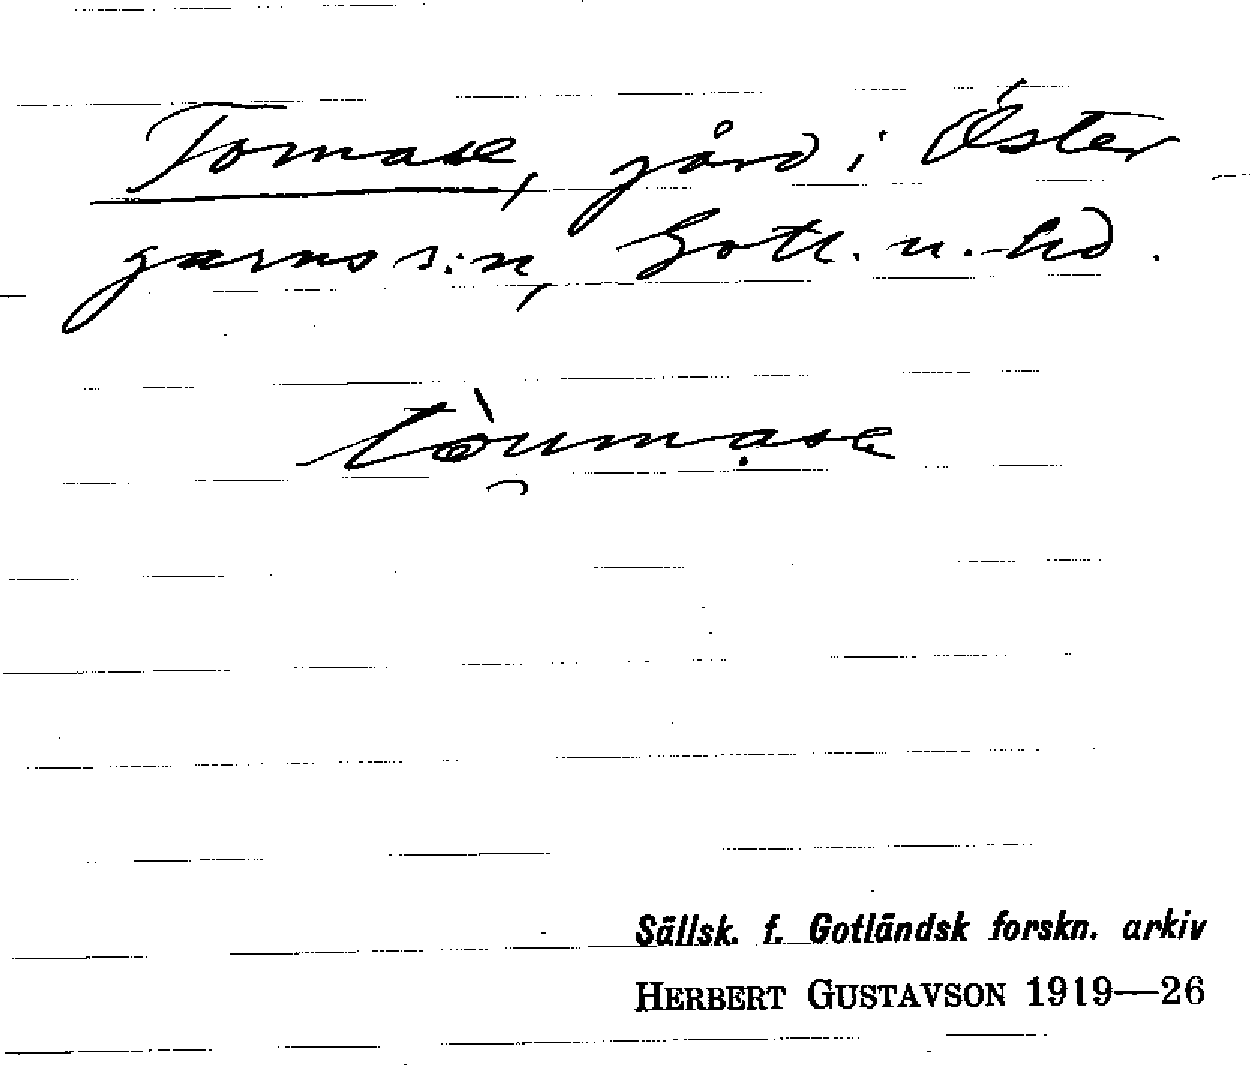 Tomase, gård i Öster
garns s:n, Gotl. n. hd.
tòu̯mạse
Sällsk. f. Gotländsk forskn. arkiv
HERBERT GUSTAVSON 1919—26